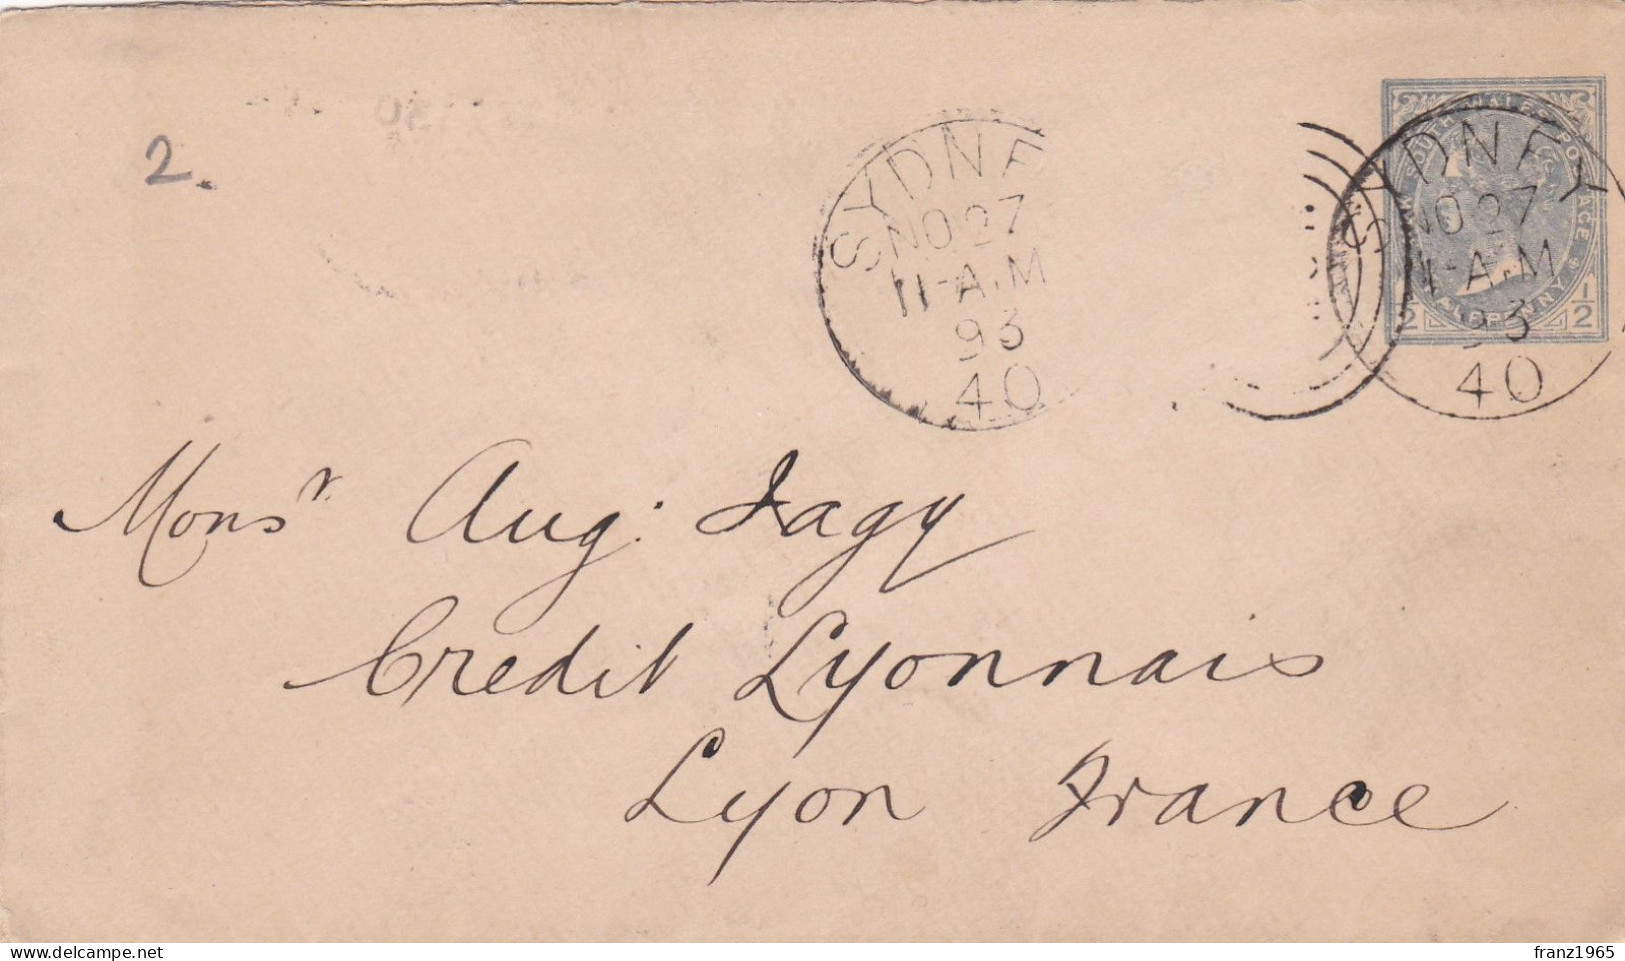 2.
SYDNEY
NO 27
11-A.M
93
40
SYDNEY
NO 27
11-A.M
93
40
SOUTH WALES POSTAGE
HALFPENNY
1/2 1/2
Monsr Aug: Jagy
Credit Lyonnais
Lyon France
delcampe.net
franz1965